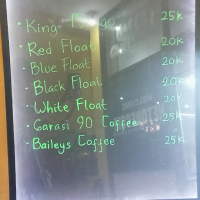 • King 25K
• Red Float 20K
• Blue Float 20K
• Black Float 20K
• White Float 20K
• Garasi 90 Coffee 25K
• Baileys Coffee 25K